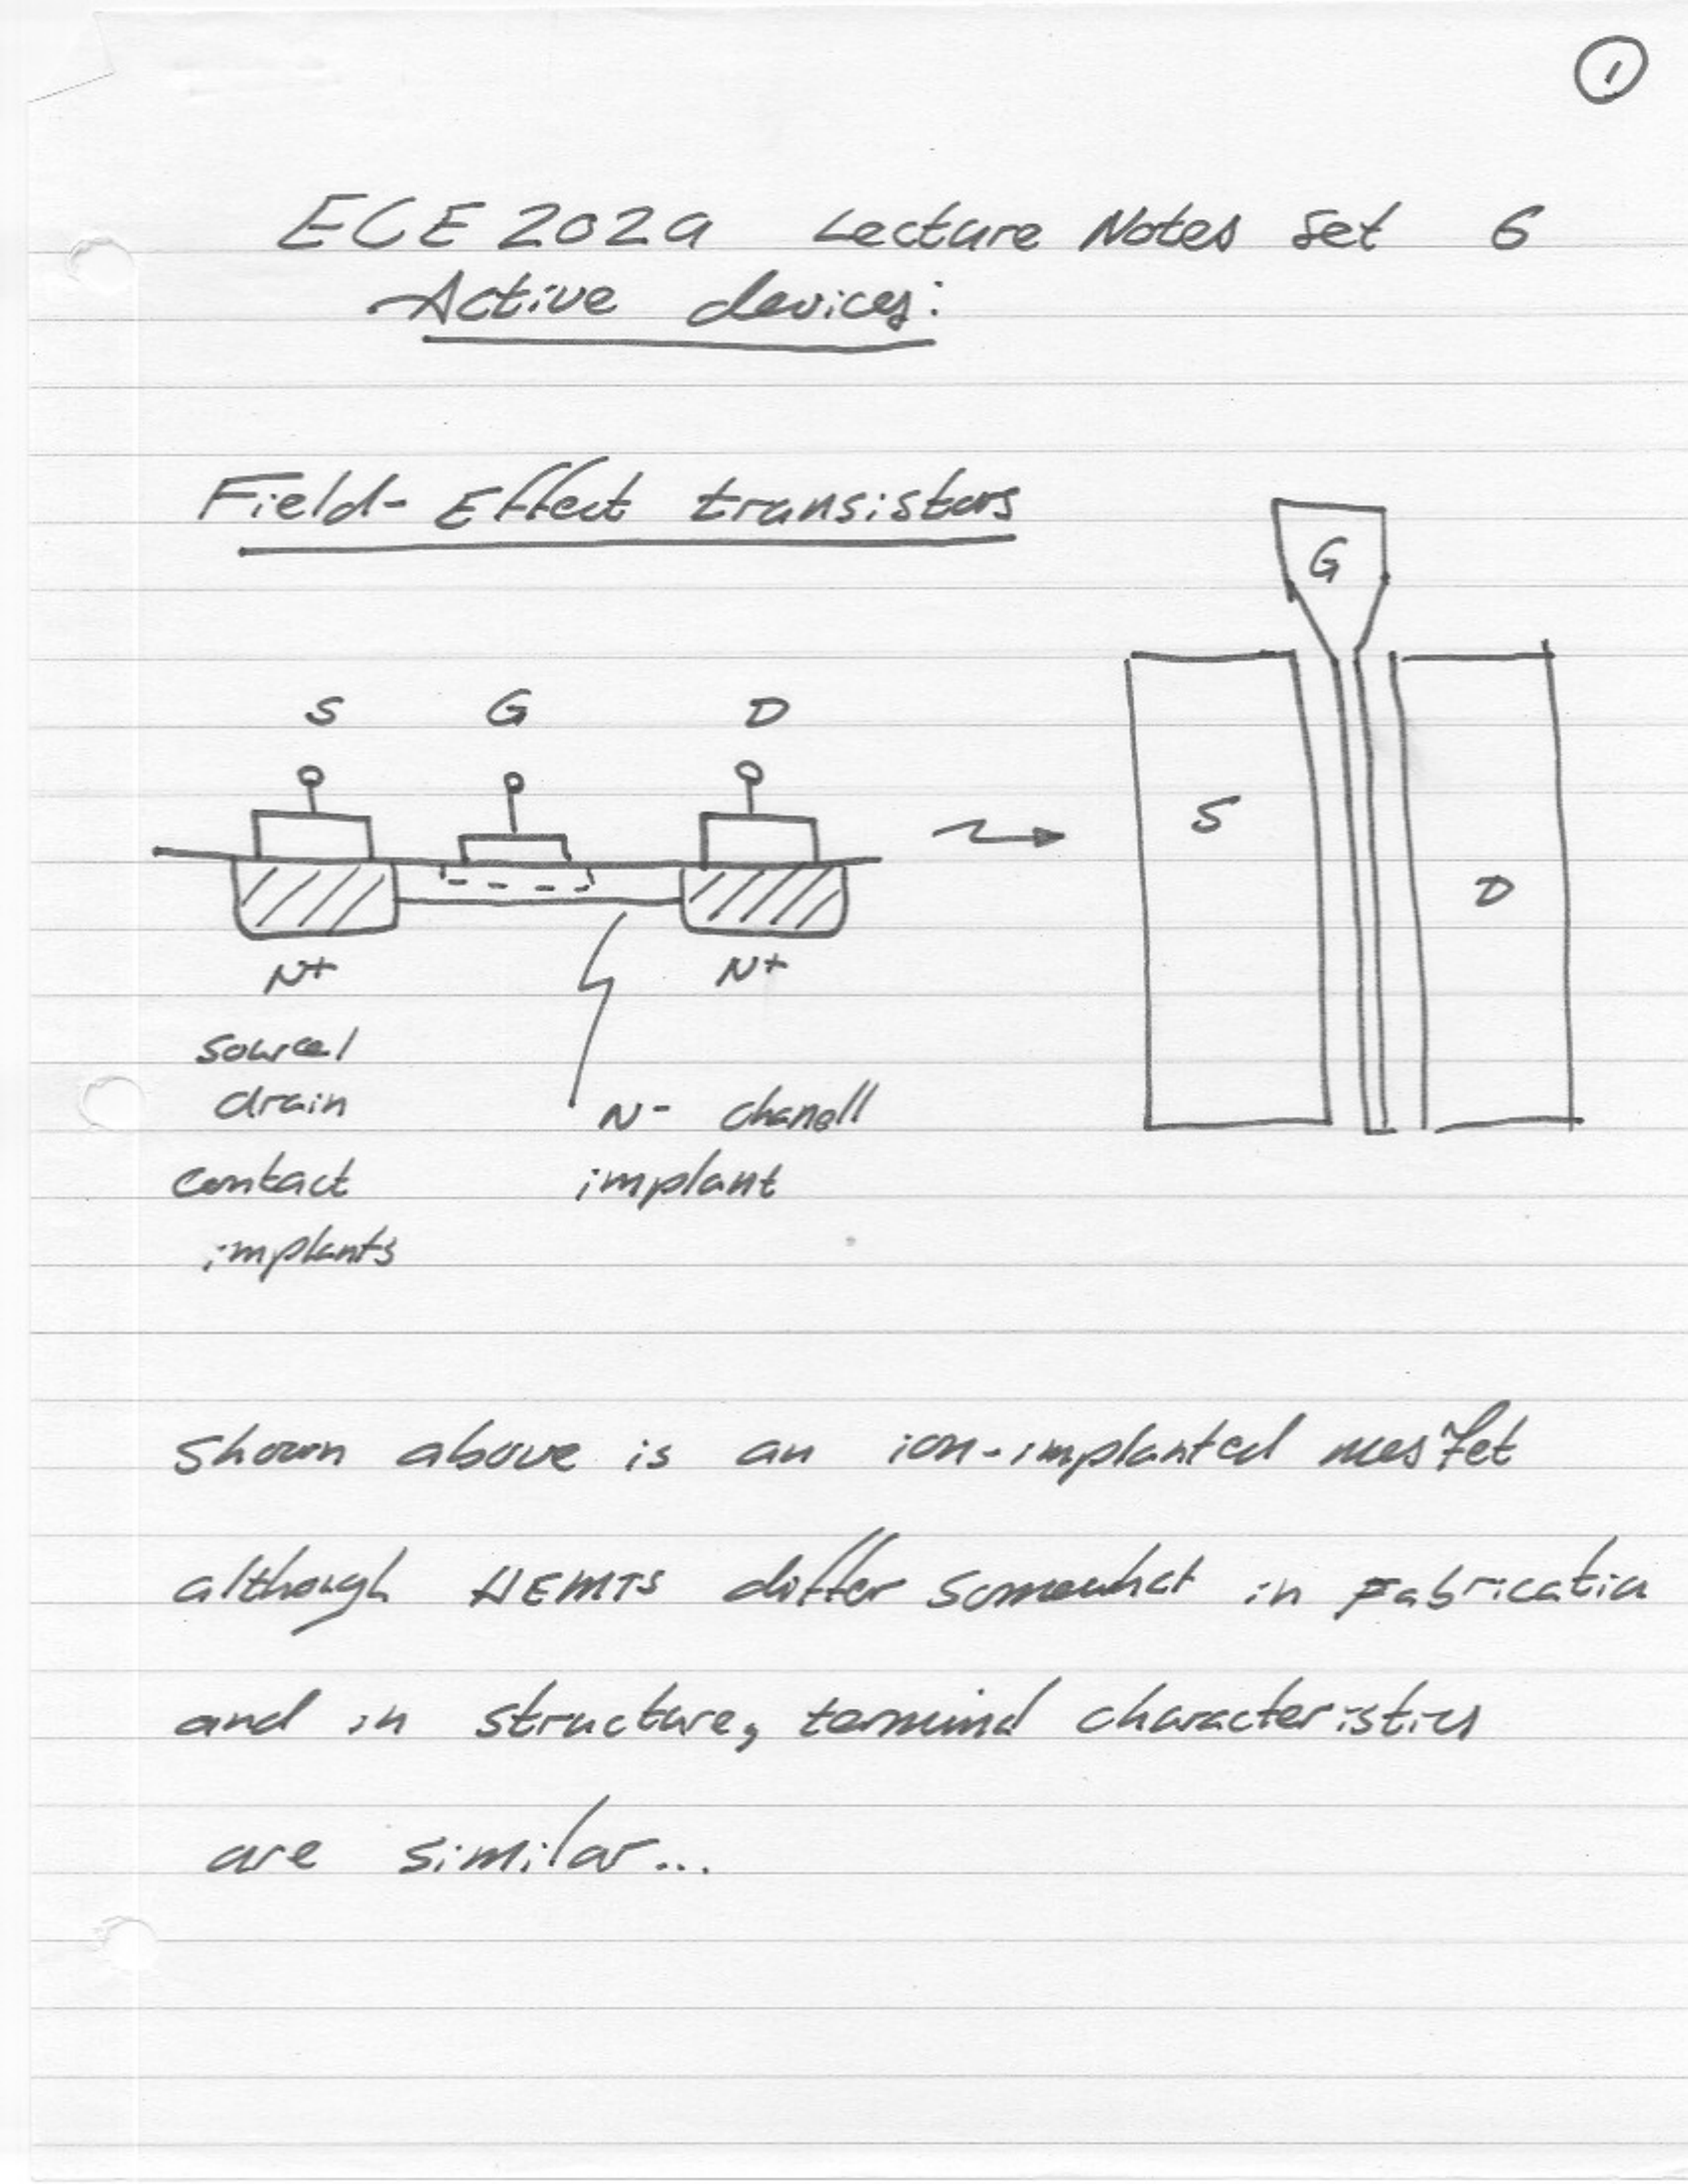 1
ECE 202a Lecture Notes Set 6
Active devices:
Field-Effect transistors
G
S G D
S
D
N+ N+
source/
drain
contact
implants
N- chanell
implant
shown above is an ion-implanted mesfet
although HEMTs differ somewhat in Fabricatio
and in structure, terminal characteristics
are similar...